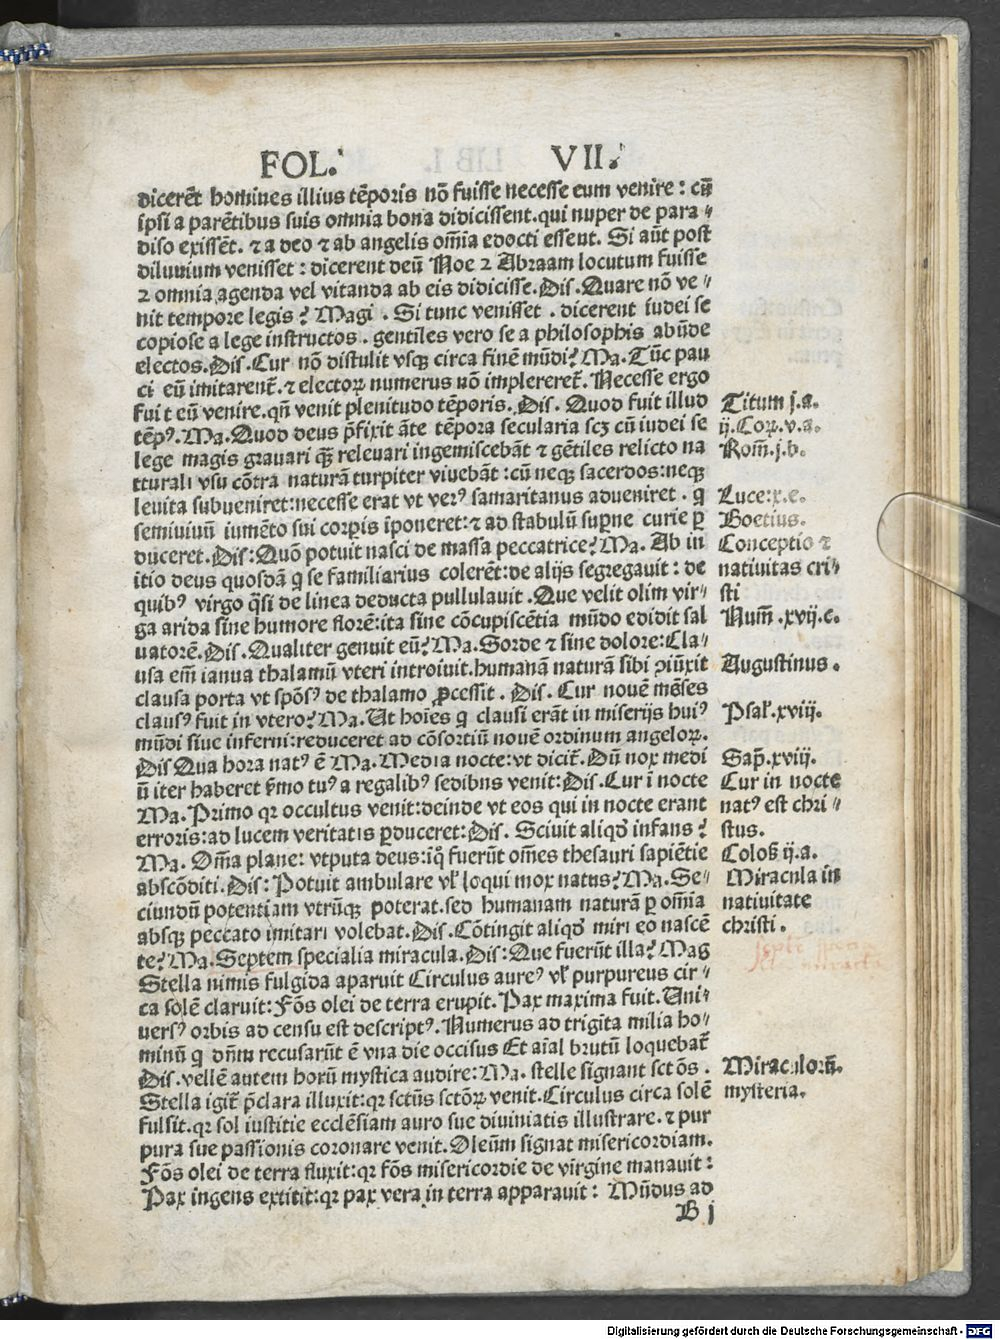 FOL. VII.
dicerēt homines illius tēporis nō fuisse necesse eum venire : cū
ipsi a parētibus suis omnia bona didicissent.qui nuper de para⸗
diso exissēt. ⁊ a deo ⁊ ab angelis om̄ia edocti essent. Si aūt post
diluuium venisset : dicerent deū Noe ⁊ Abraam locutum fuisse
⁊ omnia agenda vel vitanda ab eis didicisse. Dis. Quare nō ve⸗
nit tempore legis? Magi . Si tunc venisset . dicerent iudei se
copiose a lege instructos . gentiles vero se a philosophis abūde
electos. Dis. Cur nō distulit vsqꝫ circa finē mūdi? Ma. Tūc pau
ci eū imitarent᷑. ⁊ electoꝝ numerus nō implereret᷑. Necesse ergo
fuit eū venire. qn̄ venit plenitudo tēporis. Dis . Quod fuit illud
tēpꝰ. Ma. Quod deus p̄fixit āte tēpora secularia scꝫ cū iudei se
lege magis grauari qꝫ releuari ingemiscebāt ⁊ gētiles relicto na
tturali vsu cōtra naturā turpiter viuebāt : cū neqꝫ sacerdos: neqꝫ
leuita subueniret: necesse erat vt verꝰ samaritanus adueniret . q̇
semiuiuū iumēto sui corꝑis īponeret: ⁊ ad stabulū supne curie ꝑ
duceret. Dis: Quō potuit nasci de massa peccatrice? Ma. Ab in
itio deus quosdā q̇ se familiarius colerēt: de alijs segregauit : de
quibꝰ virgo q̇si de linea deducta pullulauit . Que velit olim vir⸗
ga arida sine humore florē: ita sine cōcupiscētia mūdo edidit sal
uatorē. Dis . Qualiter genuit eū? Ma. Sorde ⁊ sine dolore: Cla⸗
usa em̄ ianua thalamū vteri introiuit. humanā naturā sibi ꝯiūxit
clausa porta vt spōsꝰ de thalamo ꝓcessit . Dis . Cur nouē mēses
clausꝰ fuit in vtero? Ma. Ut hoīes q̇ clausi erāt in miserijs huiꝰ
mūdi siue inferni: reduceret ad cōsortiū nouē ordinum angeloꝝ.
Dis Qua hora natꝰ ē Ma. Media nocte: vt dicit᷑. Dū nox medi
ū iter haberet s̄mo tuꝰ a regalibꝰ sedibus venit: Dis. Cur ī nocte
Ma. Primo qꝛ occultus venit: deinde vt eos qui in nocte erant
erroris: ad lucem veritatis ꝑduceret: Dis. Sciuit aliqd̓ infans ?
Ma. Om̄ia plane: vtputa deus: ī q̊ fuerūt om̄es thesauri sapiētie
abscōditi. Dis: Potuit ambulare vl̓ loqui mox natus? Ma. Se⸗
ciundū potentiam vtrūqꝫ poterat. sed humanam naturā ꝑ om̄ia
absqꝫ peccato imitari volebat. Dis. Cōtingit aliqd̓ miri eo nascē
te? Ma. Septem specialia miracula. Dis: Que fuerūt illa? Mag
Stella nimis fulgida aparuit Circulus aureꝰ vl̓ purpureus cir⸗
ca solē claruit: Fōs olei de terra erupit. Pax maxima fuit. Uni⸗
uersꝰ orbis ad censu est descriptꝰ. Numerus ad trigīta milia ho⸗
minū q̇ dn̄m recusarūt ē vna die occisus Et aīal brutū loquebat᷑
Dis. vellē autem horū mystica audire: Ma. stelle signant sctōs .
Stella igit᷑ p̄clara illuxit: qꝛ sctūs sctōꝝ venit. Circulus circa solē
fulsit. qꝛ sol iustitie ecclēsiam auro sue diuiniatis illustrare. ⁊ pur
pura sue passionis coronare venit. Oleūm signat misericordiam.
Fōs olei de terra fluxit: qꝛ fōs misericordie de virgine manauit :
Pax ingens extitit: qꝛ pax vera in terra apparauit : Mūdus ad
B j
Titum j.a.
ij. Coꝝ. v.a.
Rom̄. j.b.
Luce: x.e.
Boetius.
Conceptio ⁊
natiuitas cri⸗
sti
Num̄ .xvij.c.
Augustinus .
Psal̓. xviij.
Sap̄. xviij.
Cur in nocte
natꝰ est chri⸗
stus.
Coloß ij.a.
Miracula in
natiuitate
christi .
Miraculorū.
mysteria.
Digitalisierung gefördert durch die Deutsche Forschungsgemeinschaft - DFG